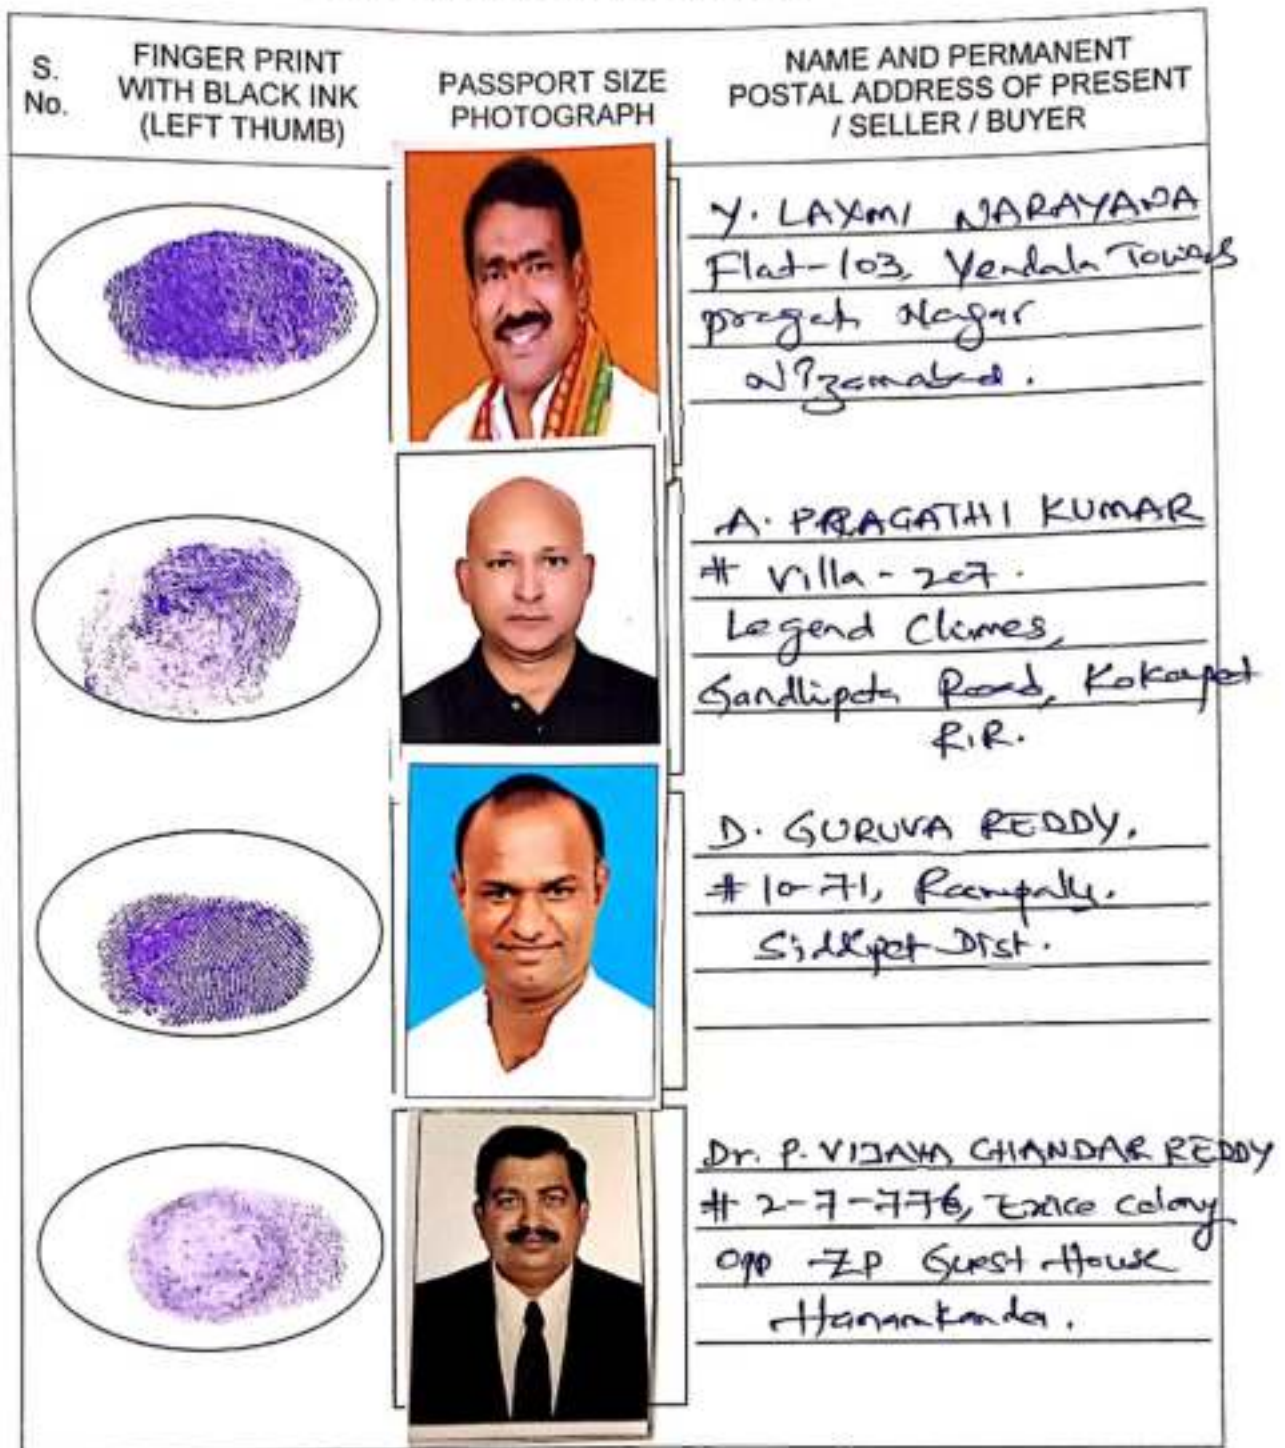 S. No.
FINGER PRINT WITH BLACK INK (LEFT THUMB)
PASSPORT SIZE PHOTOGRAPH
NAME AND PERMANENT POSTAL ADDRESS OF PRESENT / SELLER / BUYER
Y. LAXMI NARAYANA
Flat-103, Yendala Towers
pragati Nagar
Nizamabad.
A. PRAGATHI KUMAR
# Villa - 207.
Legend Chimes,
Gandhipeta Road, Kokapet
R.R.
D. GURUVA REDDY.
# 10-71, Rampally.
Siddipet Dist.
Dr. P. VIJAYA CHANDAR REDDY
# 2-7-776, Excise Colony
opp ZP Guest House
Hanamkonda.